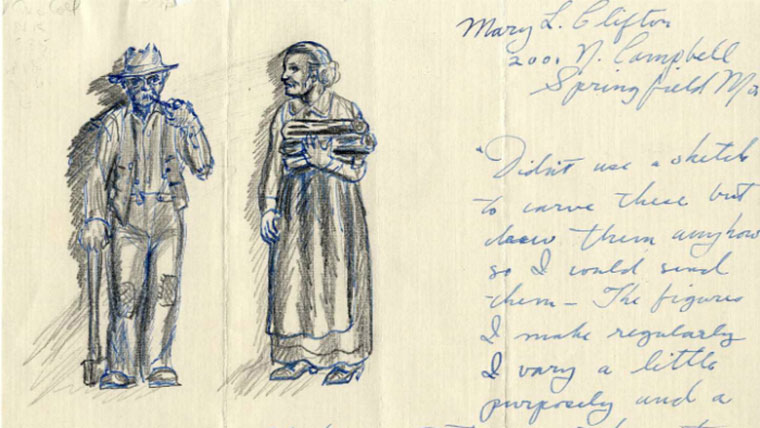 Mary L. Clifton
2001 N. Campbell
Springfield Mo
"Didn't use a sketch
to carve these but
drew them anyhow
so I could send
them — The figures
I make regularly
I vary a little
purposely and a